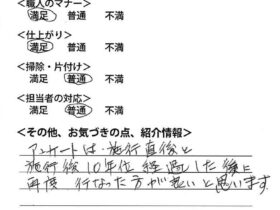 <職人のマナー>
満足 普通 不満
<仕上がり>
満足 普通 不満
<掃除・片付け>
満足 普通 不満
<担当者の対応>
満足 普通 不満
<その他、お気づきの点、紹介情報>
アンケートは施行直後と
施行後10年位経過した後に
再度 行なった方が良いと思います